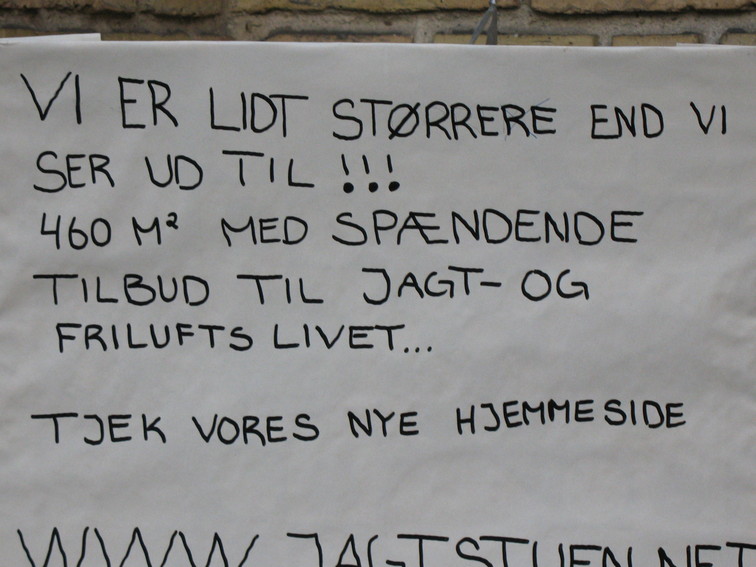 VI ER LIDT STØRRERE END VI
SER UD TIL !!!
460 M² MED SPÆNDENDE
TILBUD TIL JAGT- OG
FRILUFTS LIVET...
TJEK VORES NYE HJEMMESIDE
WWW.JAGTSTUEN.NET